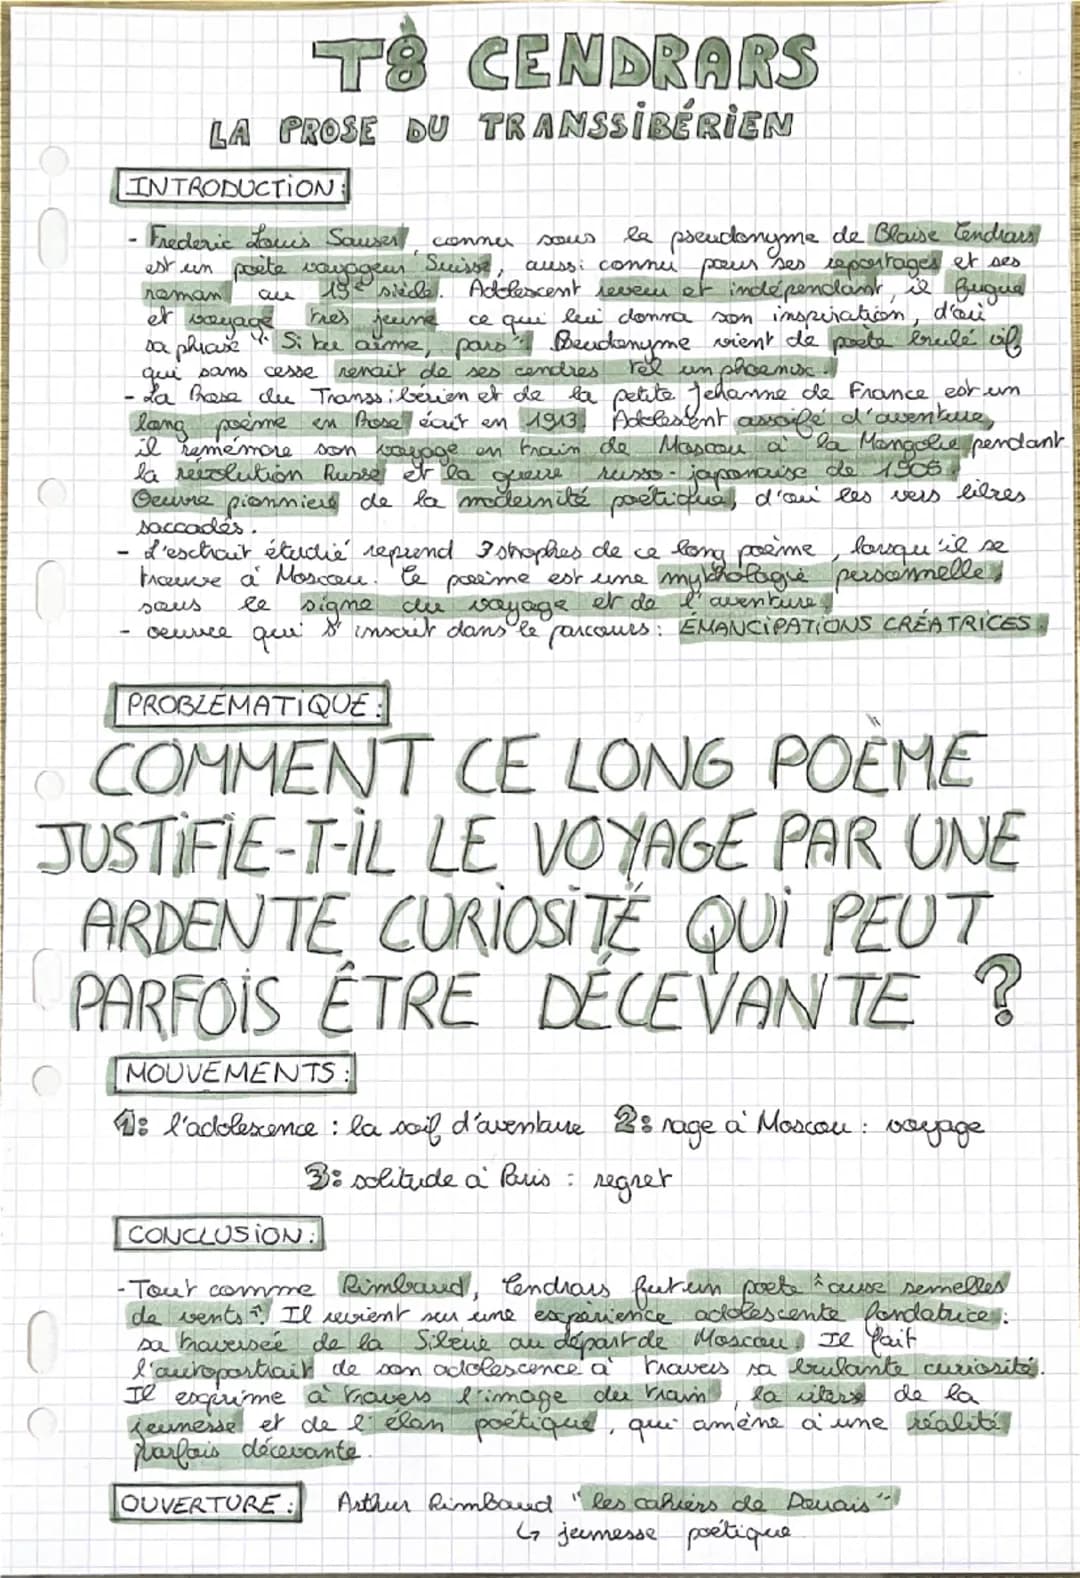 T8 CENDRARS
LA PROSE DU TRANSSIBÉRIEN
INTRODUCTION :
- Frederic Louis Sauser, connu sous le pseudonyme de Blaise Cendrars
est un poète voyageur Suisse, aussi connu pour ses reportages et ses
roman au 19e siècle. Adolescent reveur et indépendant, il fugue
et voyage très jeune ce qui lui donna son inspiration, d'où
sa phrase "Si tu aime, pars". Pseudonyme vient de poète brulé vif
qui sans cesse renait de ses cendres tel un phoenix.
- La Prose du Transsibérien et de la petite Jehanne de France est un
long poème en Prose écrit en 1913. Adolescent assoifé d'aventure,
il remémore son voyage en train de Moscou à la Mongolie pendant
la révolution Russe et la guerre russo-japonaise de 1905.
Oeuvre pionniere de la modernité poétique, d'où les vers libres
saccadés.
- L'extrait étudié reprend 3 strophes de ce long poème, lorsqu'il se
trouve à Moscou. Ce poème est une mythologie personnelle,
sous le signe du voyage et de l'aventure.
- oeuvre qui s'inscrit dans le parcours : ÉMANCIPATIONS CRÉATRICES.
PROBLÉMATIQUE :
COMMENT CE LONG POËME
JUSTIFIE-T-IL LE VOYAGE PAR UNE
ARDENTE CURIOSITÉ QUI PEUT
PARFOIS ÊTRE DÉCEVANTE ?
MOUVEMENTS :
1: l'adolescence : la soif d'aventure 2: rage à Moscou : voyage
3: solitude à Paris : regret
CONCLUSION :
- Tout comme Rimbaud, Cendrars fut un poete "aux semelles
de vents". Il revient sur une expérience adolescente fondatrice :
sa traversée de la Sibérie au départ de Moscou. Il fait
l'autoportrait de son adolescence à travers sa brulante curiosité.
Il exprime à travers l'image du train, la vitesse de la
jeunesse et de l'élan poétique, qui amène à une réalité
parfois décevante.
OUVERTURE : Arthur Rimbaud "les cahiers de Douais"
↳ jeunesse poétique